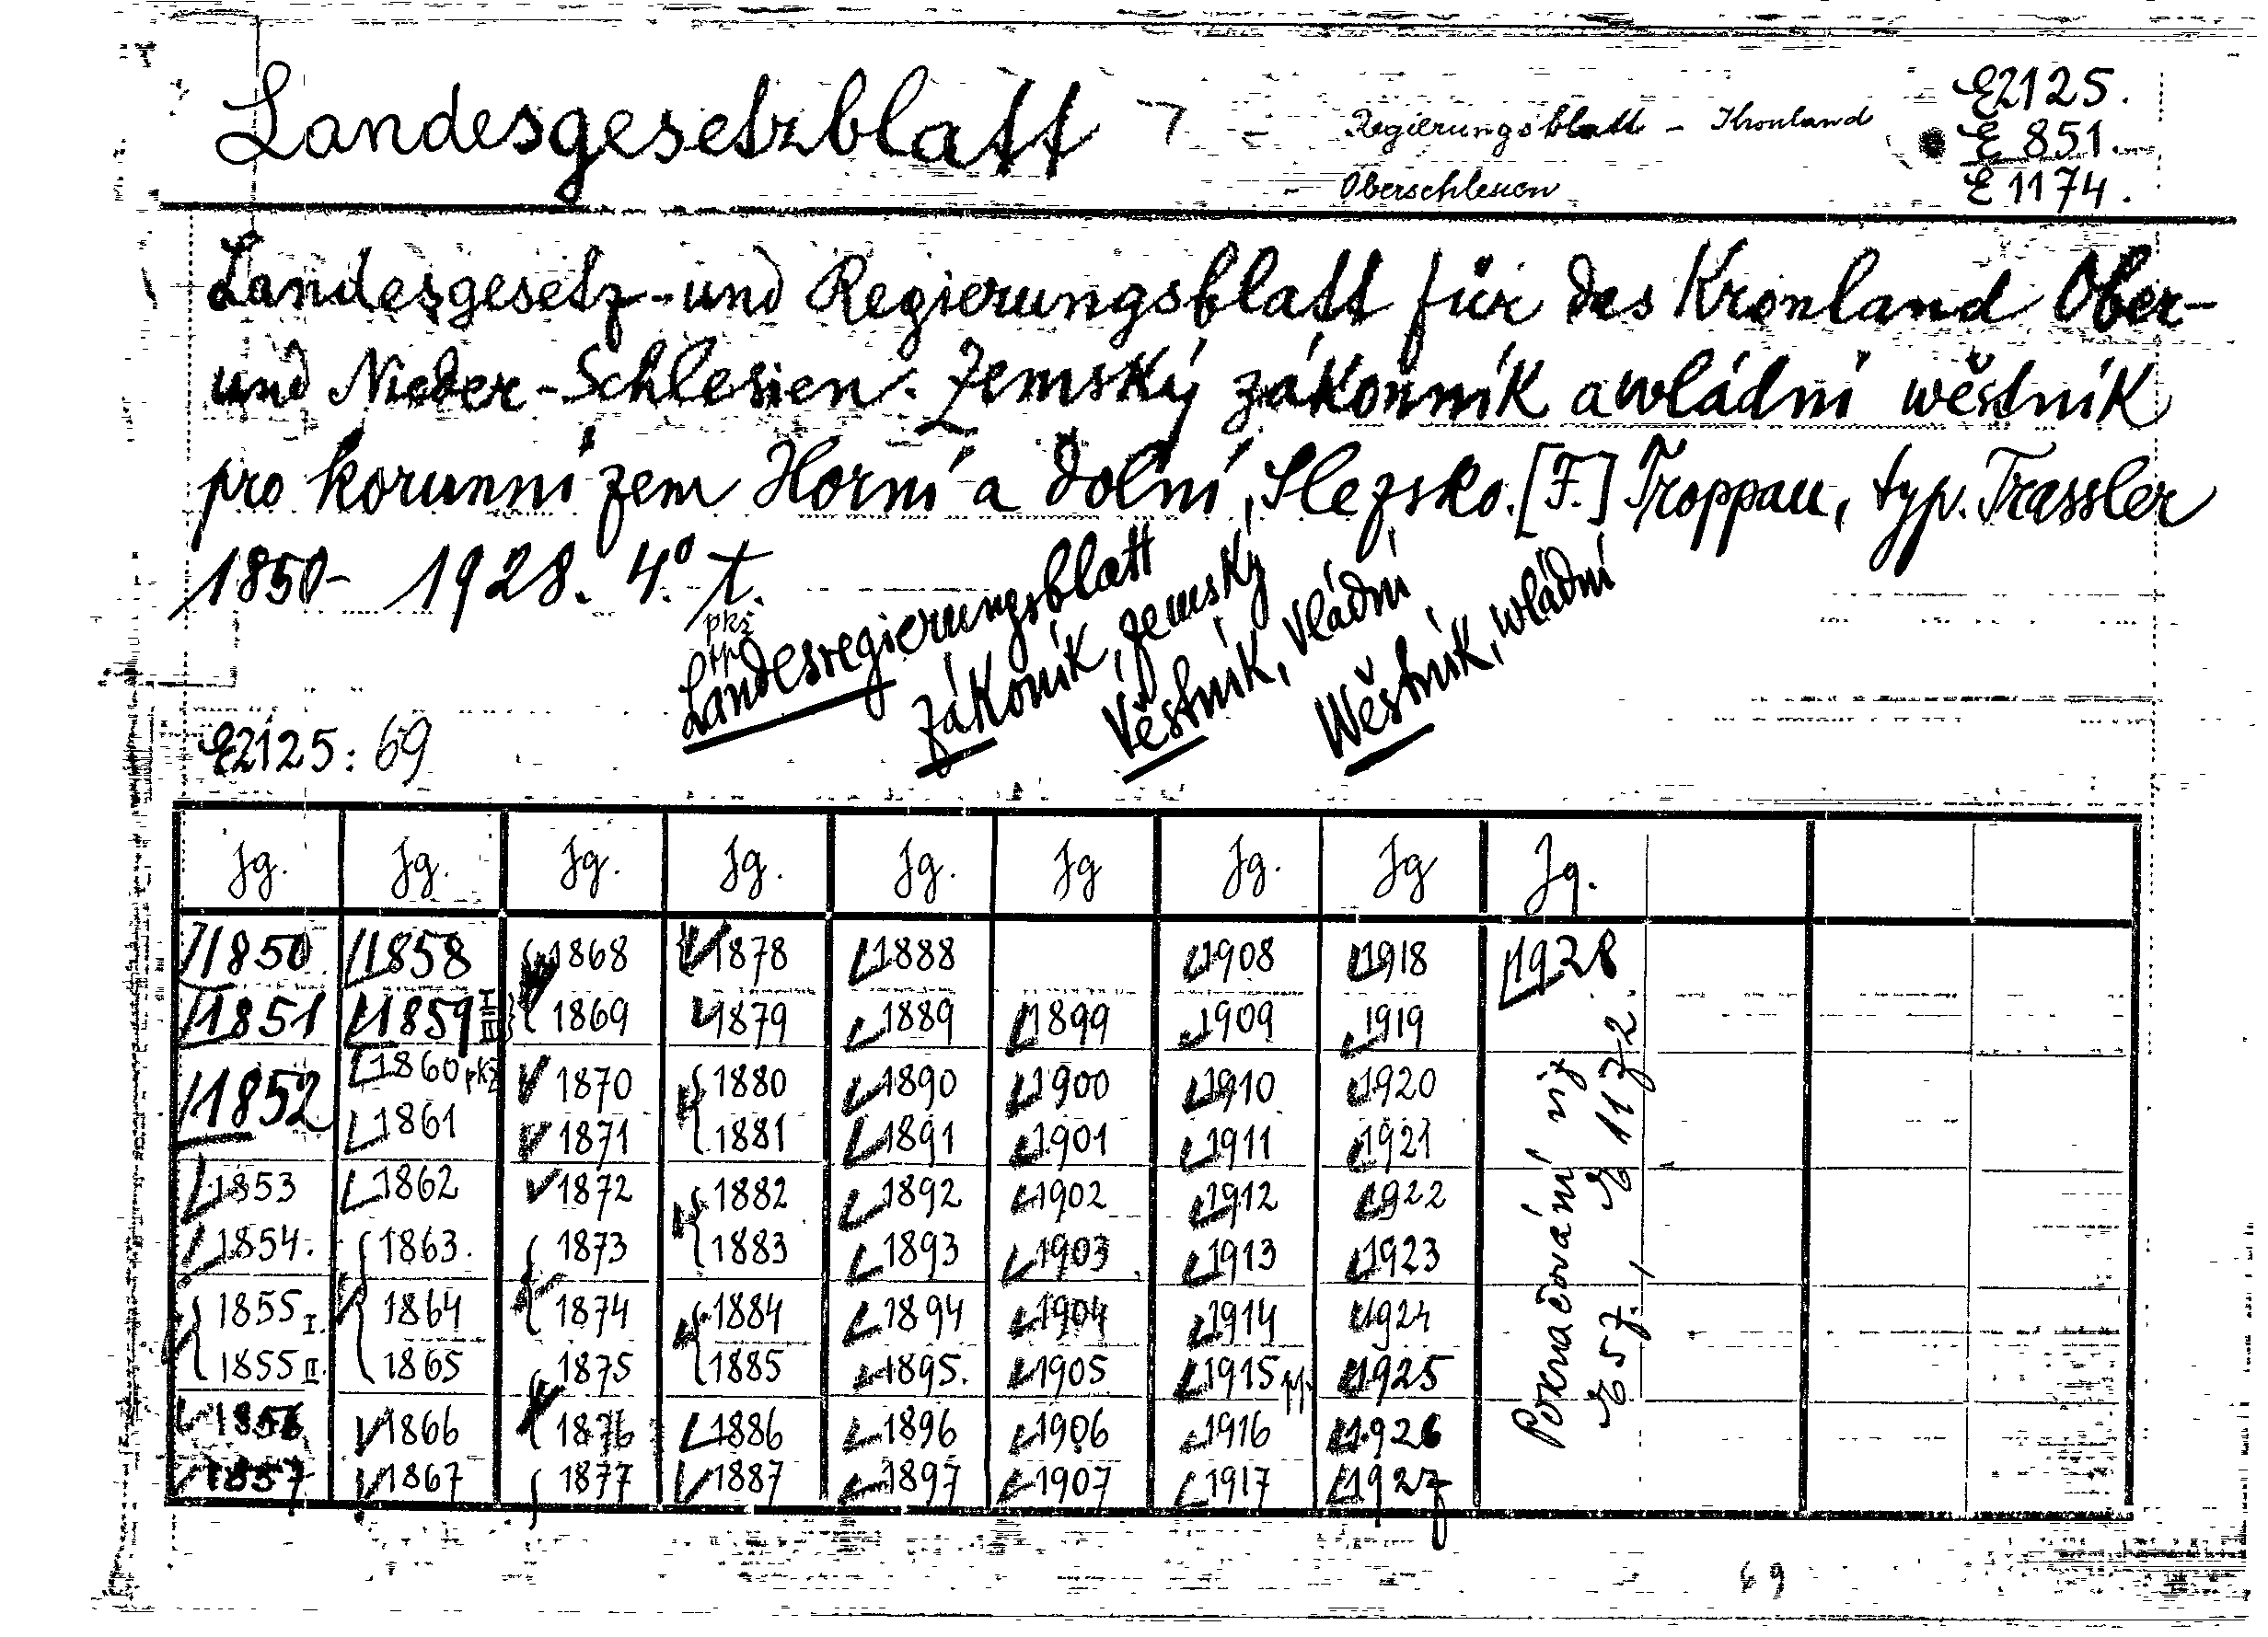 Landesgesetzblatt
- Regierungsblatt - Kronland
- Oberschlesien
E2125.
E 851.
E 1174.
Landesgesetz- und Regierungsblatt für das Kronland Ober-
und Nieder-Schlesien. Zemský zákonník a wládní wěstník
pro korunní zem Horní a Dolní Slezsko. [F.] Troppau, typ. Trassler
1850- 1928. 4° t.
pkz
Landesregierungsblatt
Zákoník, zemský
Věstník, vládní
Wěstník, wládní
E2125: 69
Jg. Jg. Jg. Jg. Jg. Jg Jg. Jg Jg.
1850 1858 1868 1878 1888 1908 1918 1928
1851 1859 I II 1869 1879 1889 1899 1909 1919
1852 1860 pkz 1870 1880 1890 1900 1910 1920
1861 1871 1881 1891 1901 1911 1921
1853 1862 1872 1882 1892 1902 1912 1922
1854. 1863. 1873 1883 1893 1903 1913 1923
1855 I. 1864 1874 1884 1894 1904 1914 1924
1855 II. 1865 1875 1885 1895. 1905 1915 1925
1856 1866 1876 1886 1896 1906 1916 1926
1857 1867 1877 1887 1897 1907 1917 1927
Pokračování viz
E 57., E 1172.
69